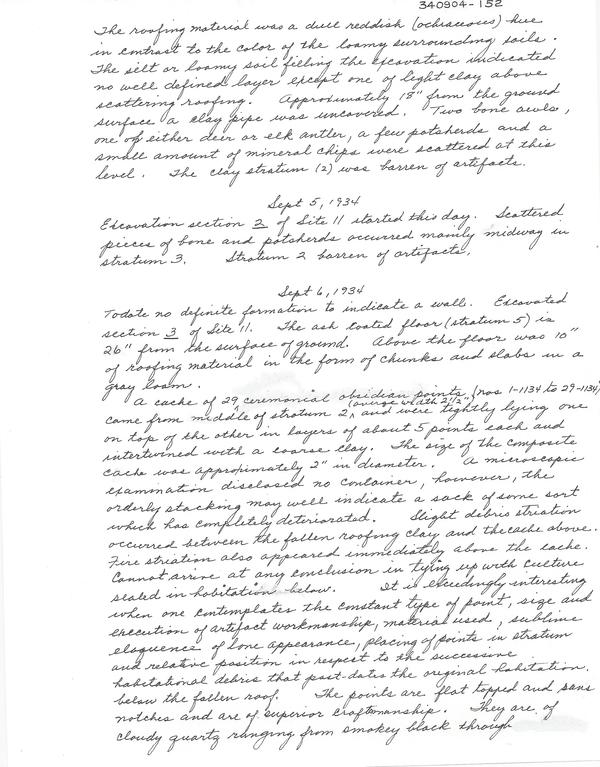 340904-152
The roofing material was a dull reddish (ochraceous) hue
in contrast to the color of the loamy surrounding soils.
The silt or loamy soil filling the excavation indicated
no well defined layer except one of light clay above
scattering roofing. Approximately 18" from the ground
surface a clay pipe was uncovered. Two bone awls,
one of either deer or elk antler, a few potsherds and a
small amount of mineral chips were scattered at this
level. The clay stratum (2) was barren of artifacts.
Sept 5, 1934
Excavation section 2 of Site 11 started this day. Scattered
pieces of bone and potsherds occurred mainly midway in
stratum 3. Stratum 2 barren of artifacts.
Sept 6, 1934
Todate no definite formation to indicate a wall. Excavated
section 3 of Site 11. The ash coated floor (stratum 5) is
26" from the surface of ground. Above the floor was 10"
of roofing material in the form of chunks and slabs in a
gray loam.
A cache of 29 ceremonial obsidian points (nos 1-1134 to 29-1134)
(average width 2 1/2")
came from middle of stratum 2, and were tightly lying one
on top of the other in layers of about 5 points each and
intertwined with a coarse clay. The size of the composite
cache was approximately 2" in diameter. A microscopic
examination disclosed no container, however, the
orderly stacking may well indicate a sack of some sort
which has completely deteriorated. Slight debris striation
occurred between the fallen roofing clay and the cache above.
Fire striation also appeared immediately above the cache.
Cannot arrive at any conclusion in tying up with culture
sealed in habitation below. It is exceedingly interesting
when one contemplates the constant type of point, size and
execution of artifact workmanship, material used, sublime
eloquence of lone appearance, placing of points in stratum
and relative position in respect to the successive
habitational debris that post-dates the original habitation
below the fallen roof. The points are flat topped and sans
notches and are of superior craftmanship. They are of
cloudy quartz ranging from smokey black through